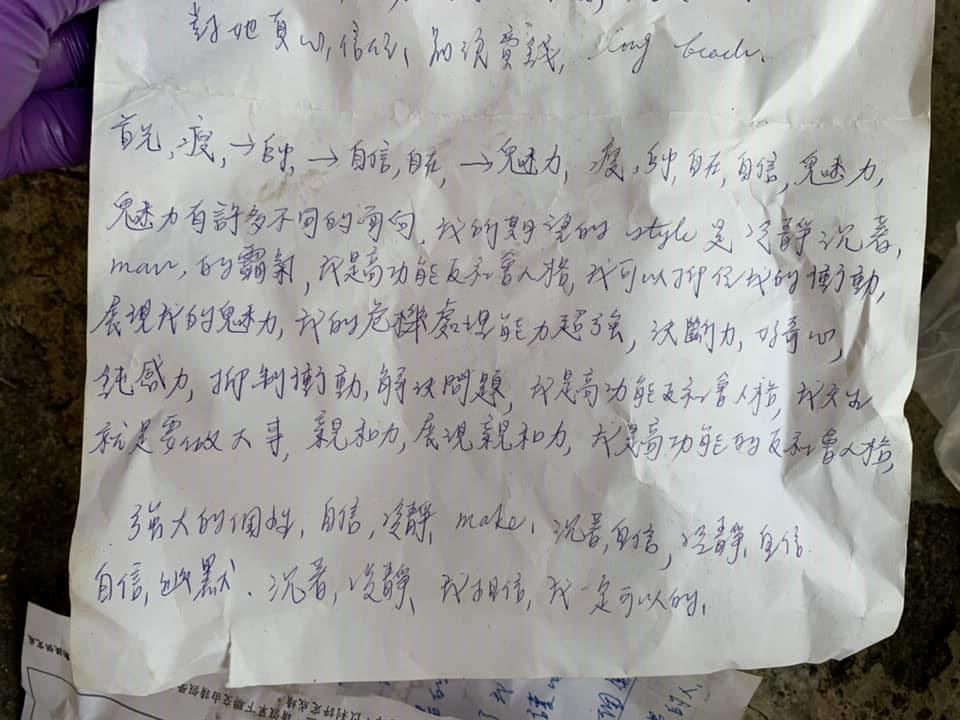 對她真心,信任,別領實錢, long beach.
首先,瘦,→帥,→自信,自在,→魅力,瘦,帥,自在,自信,魅力,
魅力有許多不同的面向,我的期望的 style 是冷靜沉著,
man,的霸氣,我是高功能反社會人格,我可以抑制我的衝動,
展現我的魅力,我的危機處理能力超強,決斷力,好奇心,
鈍感力,抑制衝動,解決問題,我是高功能反社會人格,我天生
就是要做大事,親和力,展現親和力,我是高功能的反社會人格,
強大的個性,自信,冷靜, make,沉著,自信,冷靜,自信
自信,幽默、沉著,冷靜、我相信,我一定可以的,